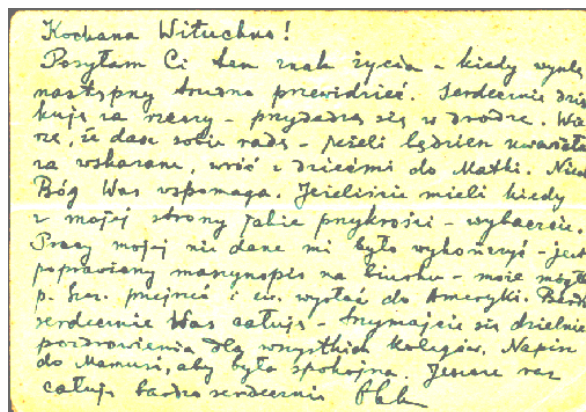 Kochana Wituchno!
Posyłam Ci ten znak życia – kiedy wyślę
następny trudno przewidzieć. Serdecznie dzię
kuję za rzeczy – przydadzą się w drodze. Wie
rzę, że dasz sobie radę – jeżeli będziesz uważała
za wskazane, wróć z dziećmi do Matki. Niech
Bóg Was wspomaga. Jeżeliście mieli kiedy
z mojej strony jakie przykrości – wybaczcie.
Pracy mojej nie dane mi było wykończyć – jest
poprawiony maszynopis na biurku – może mógłby
p. Szcz. przejrzeć i ew. wysłać do Ameryki. Bardzo
serdecznie Was całuję – trzymajcie się dzielnie
pozdrowienia dla wszystkich kolegów. Napisz
do Mamusi, aby była spokojna. Jeszcze raz
całuję bardzo serdecznie